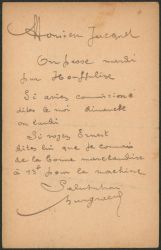 Monsieur Jacquet
On passe mardi
par Houffalize
Si aviez commissions
dites le moi dimanche
ou lundi
Si voyez Ernest
dites lui que je connais
de la bonne marchandise
à 13 pour la machine
Salutation